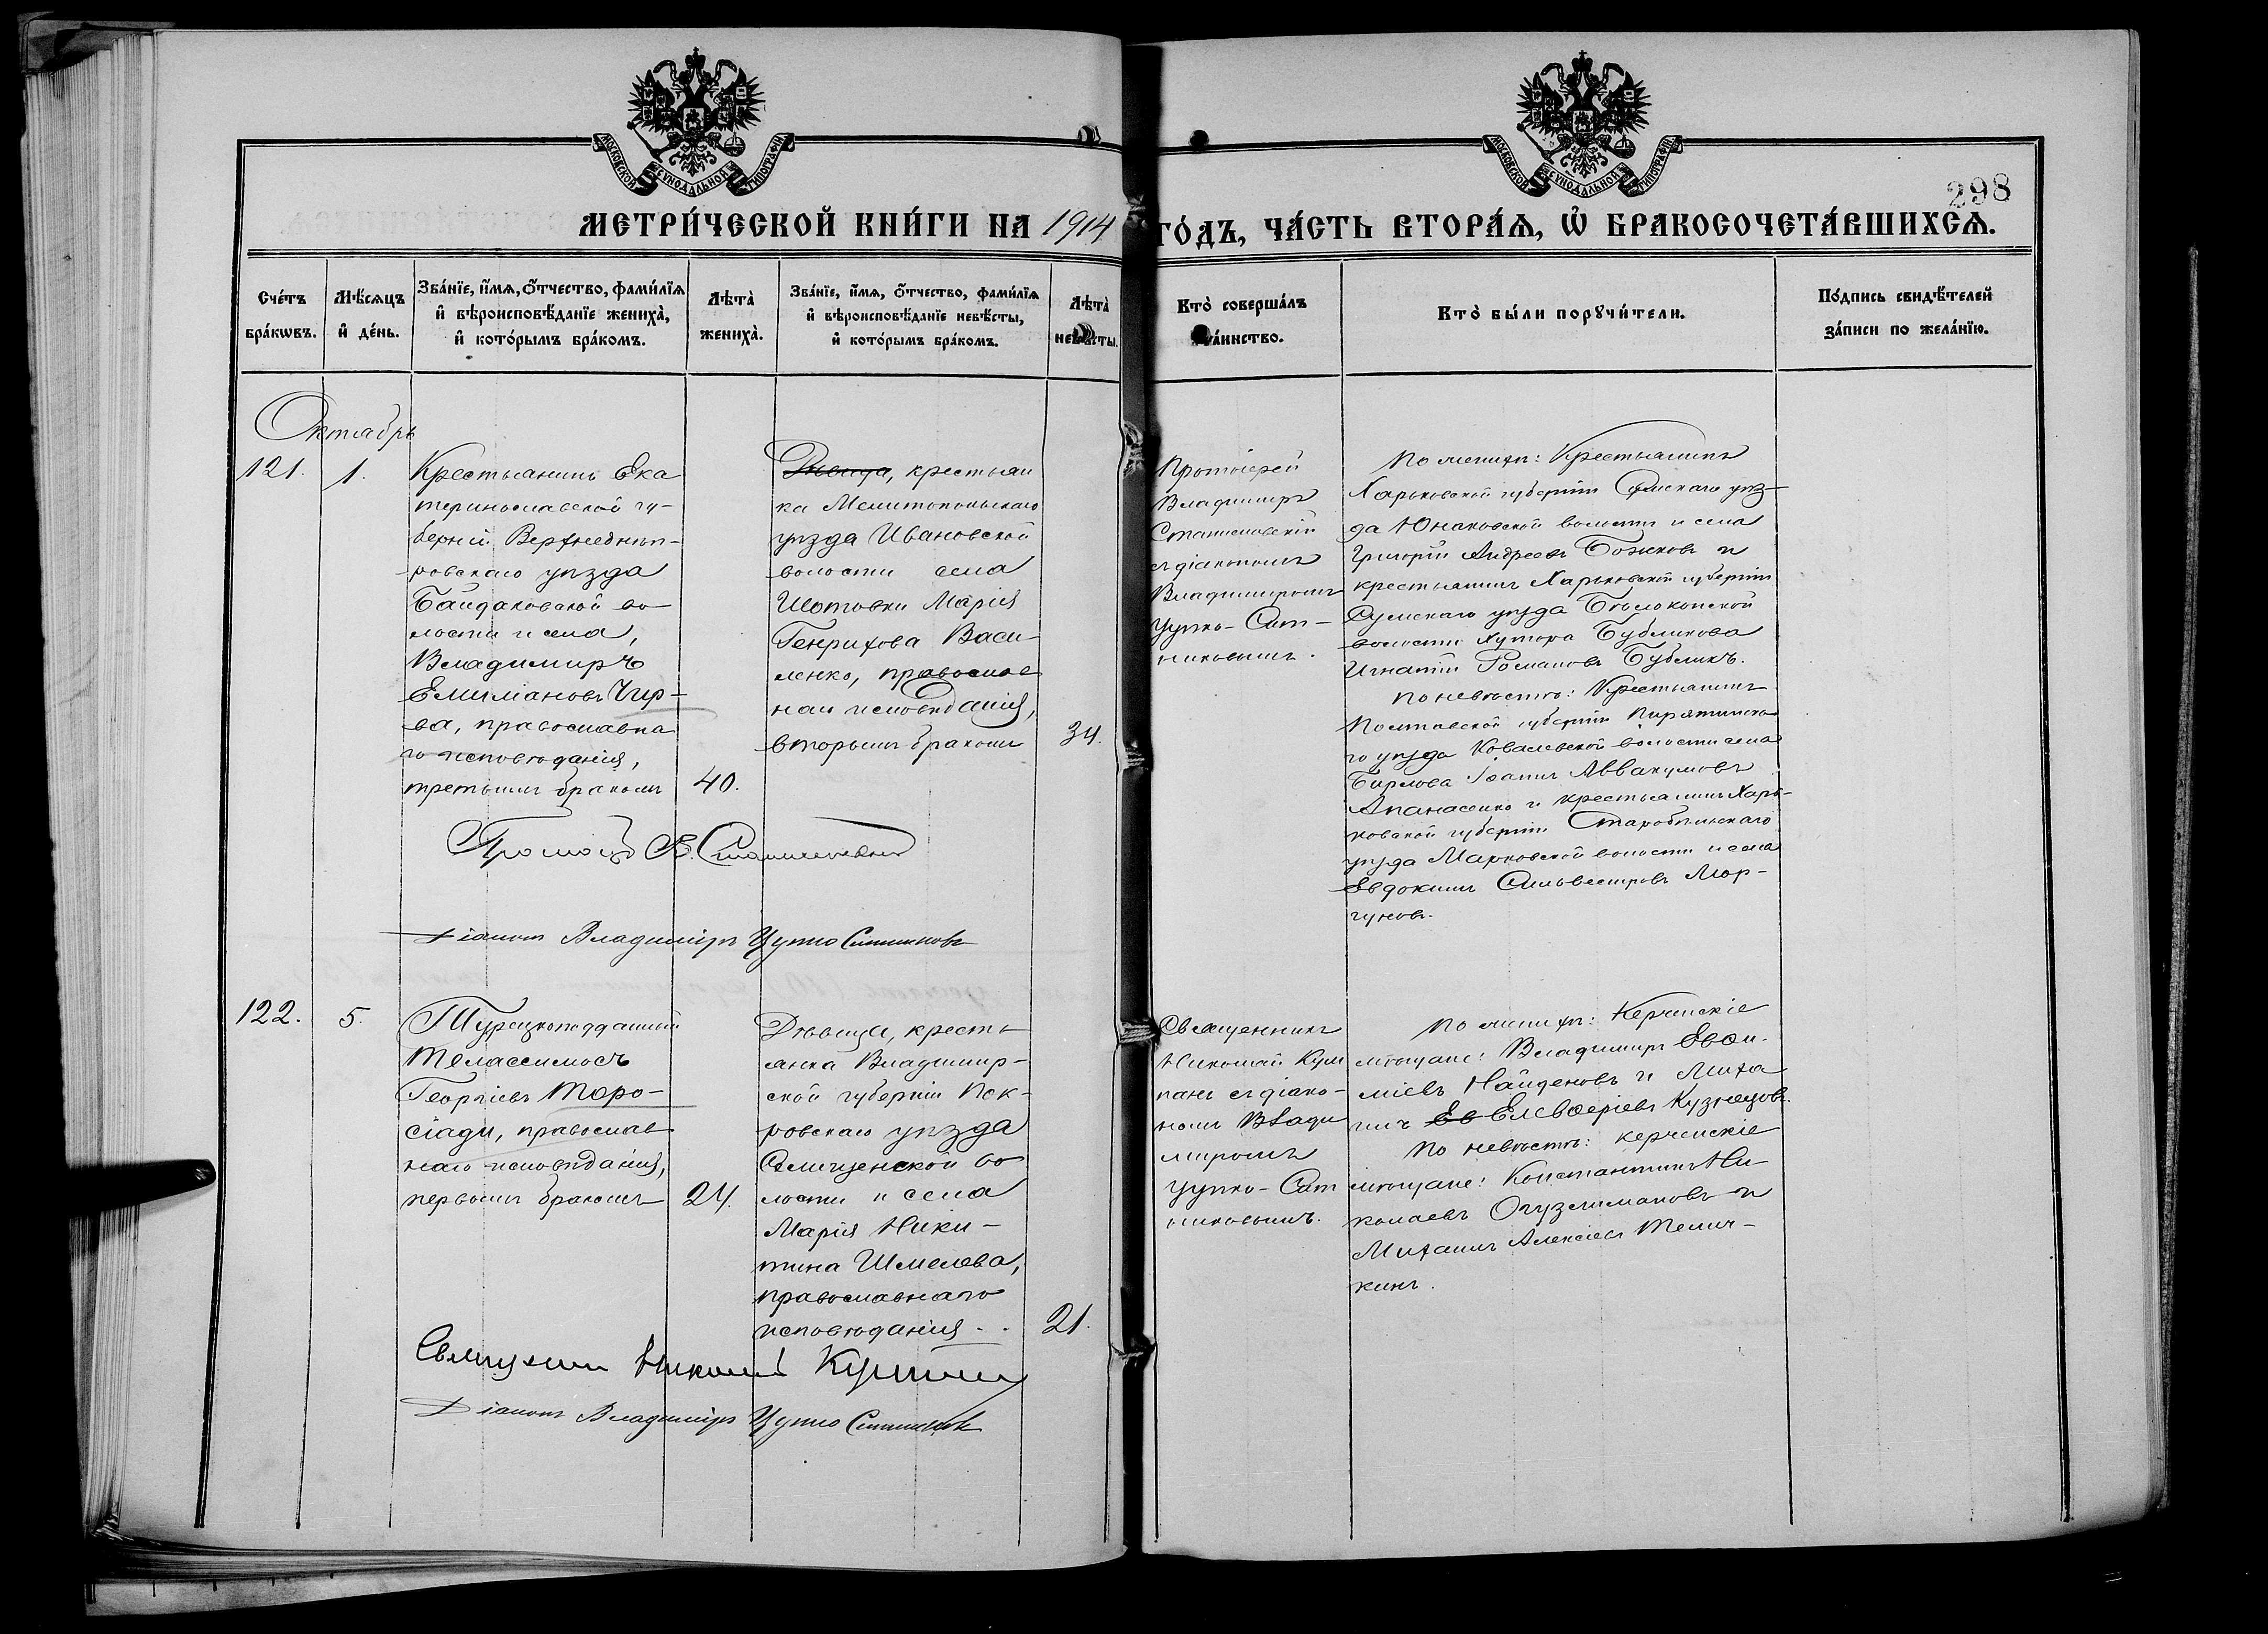 МОСКОВСКОЙ СѴНОДАЛЬНОЙ ТИПОГРАФІИ
МОСКОВСКОЙ СѴНОДАЛЬНОЙ ТИПОГРАФІИ
298
МЕТРИ́ЧЕСКОЙ КНИ́ГИ НА 1914 ГО́ДЪ, ЧА́СТЬ ВТОРА́Ѧ, Ѡ҆ БРАКОСОЧЕТА́ВШИХСѦ.
Сче́тъ бра́кѡвъ.
Мѣ́сѧцъ и҆ де́нь.
Зва́нїе, и҆́мѧ, ѻ҆́тчество, фами́лїѧ
и҆ вѣроисповѣ́данїе жениха̀,
и҆ кото́рымъ бра́комъ.
Лѣта̀ жениха̀.
Зва́нїе, и҆́мѧ, ѻ҆́тчество, фами́лїѧ
и҆ вѣроисповѣ́данїе невѣ́сты,
и҆ кото́рымъ бра́комъ.
Лѣта̀ невѣ́сты.
Кто̀ соверша́лъ
та́инство.
Кто̀ бы́ли порꙋчи́тели.
По́дпись свидѣ́телей
за́писи по жела́нїю.
Октябрь
121.
1.
Крестьянинъ Ека
теринославской гу-
берніи Верхнеднѣп-
ровскаго уѣзда
Байдаковской во-
лости и села,
Владимиръ
Емиліановъ Чир-
ва, православна
го исповѣданія,
третьимъ бракомъ
40.
Дѣвица, крестьян
ка Мелитопольскаго
уѣзда Ивановской
волости села
Шотовки Марія
Генрихова Васи-
ленко, православ
наго исповѣданія,
вторымъ бракомъ
34.
Протоіерей
Владимиръ
Станиславскій
съ діакономъ
Владимиромъ
Цупко-Сит-
никовымъ.
По женихѣ: Крестьянинъ
Харьковской губерніи Сумскаго уѣз-
да Юнаковской волости и села
Григорій Андреевъ Божковъ и
крестьянинъ Харьковской губерніи
Сумскаго уѣзда Бѣлокопской
волости хутора Бубликова
Игнатій Романовъ Бубликъ.
По невѣстѣ: Крестьянинъ
Полтавской губерніи Пирятинска-
го уѣзда Ковалевской волости села
Бирлова Іоаннъ Аввакумовъ
Апанасенко и крестьянинъ Харь-
ковской губерніи Старобѣльскаго
уѣзда Марковской волости и села
Евдокимъ Сильвестровъ Мор-
гуновъ.
Протоіер. В. Станиславскій
Діаконъ Владиміръ Цупко Ситниковъ
122.
5.
Турецкоподданный
Телассимосъ
Георгіевъ Торо-
сіади, православ
наго исповѣданія,
первымъ бракомъ
24.
Дѣвица, кресть
янка Владимир-
ской губерніи Пок-
ровскаго уѣзда
волости и села
Марія Ники-
тина Шмелева,
православнаго
исповѣданія..
21.
Священникъ
Николай Кум
панъ съ діако-
номъ Влади
миромъ
Цупко-Сит
никовымъ.
По женихѣ: Керченскіе
мѣщане: Владимиръ Евѳи-
міевъ Найденовъ и Миха
илъ Ев Елевѳеріевъ Кузнецовъ.
По невѣстѣ: керченскіе
мѣщане: Константинъ Ни-
колаевъ Огузлимановъ и
Михаилъ Алексіевъ Телич-
кинъ.
Священникъ Николай Кумпанъ
Діаконъ Владиміръ Цупко Ситниковъ